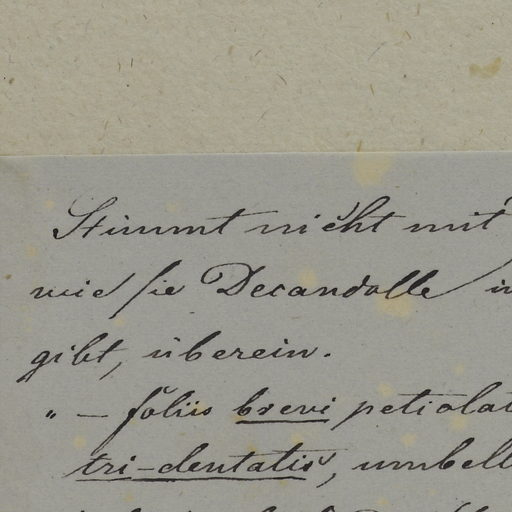 Stimmt nicht mit
wie sie Decandolle
gibt, überein.
" — foliis brevi petiolat
tri-dentatis, umbell